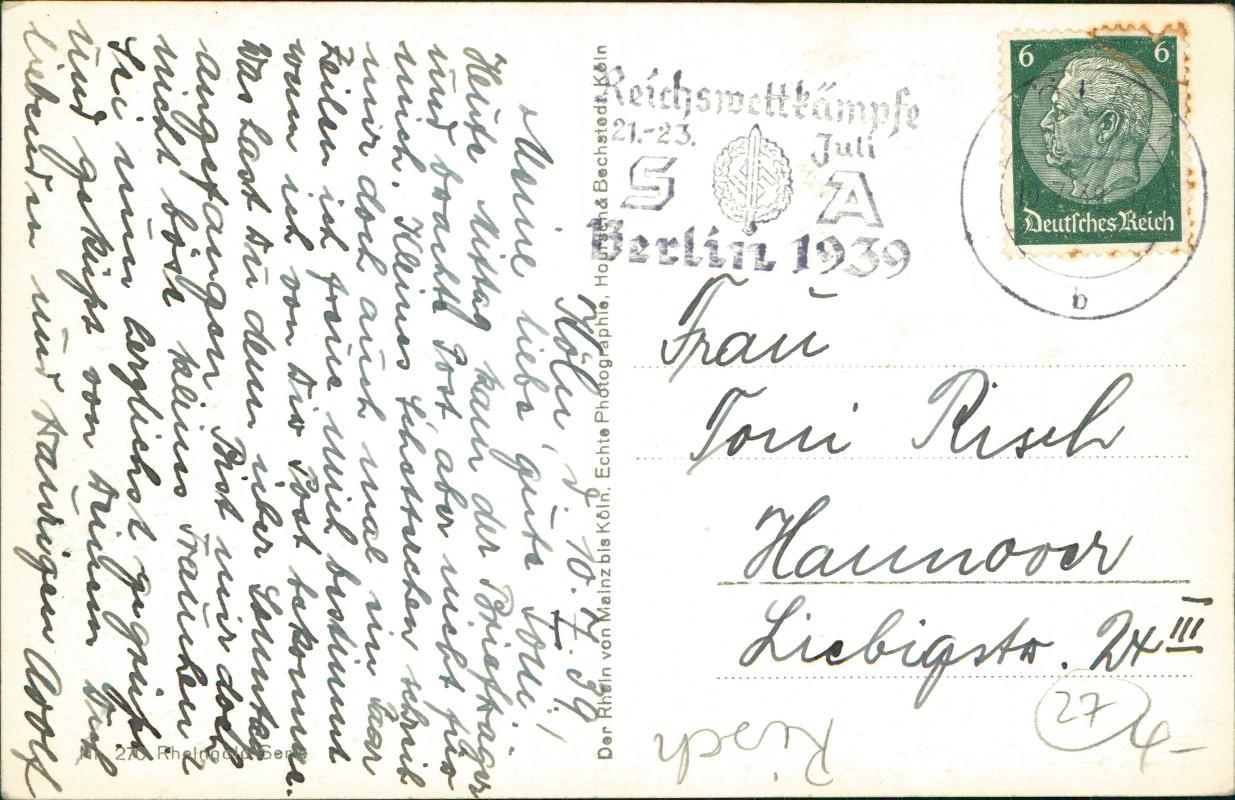 Köln, d. 10.7.39.
Meine liebe gute Toni!
Heute Mittag kam der Briefträger
und brachte Post aber nicht für
mich. Kleines Schätzchen schreib
mir doch auch mal ein paar
Zeilen ich freue mich bestimmt
wenn ich von Dir Post bekomme.
Was hast Du denn über Sonntag
angefangen. Bist mir doch
nicht böse kleines Frauchen?
Sei nun herzlichst gegrüßt
und geküßt von Deinem Dich
liebenden und traurigen Adolf
Nr. 270 Rheingold Serie
Der Rhein von Mainz bis Köln. Echte Photographie, Hoursch & Bechstedt, Köln
Reichswettkämpfe
21.-23. Juli
S A
Berlin 1939
6 6
Deutsches Reich
b
Frau
Toni Risch
Hannover
Liebigstr. 2x III
27
Risch